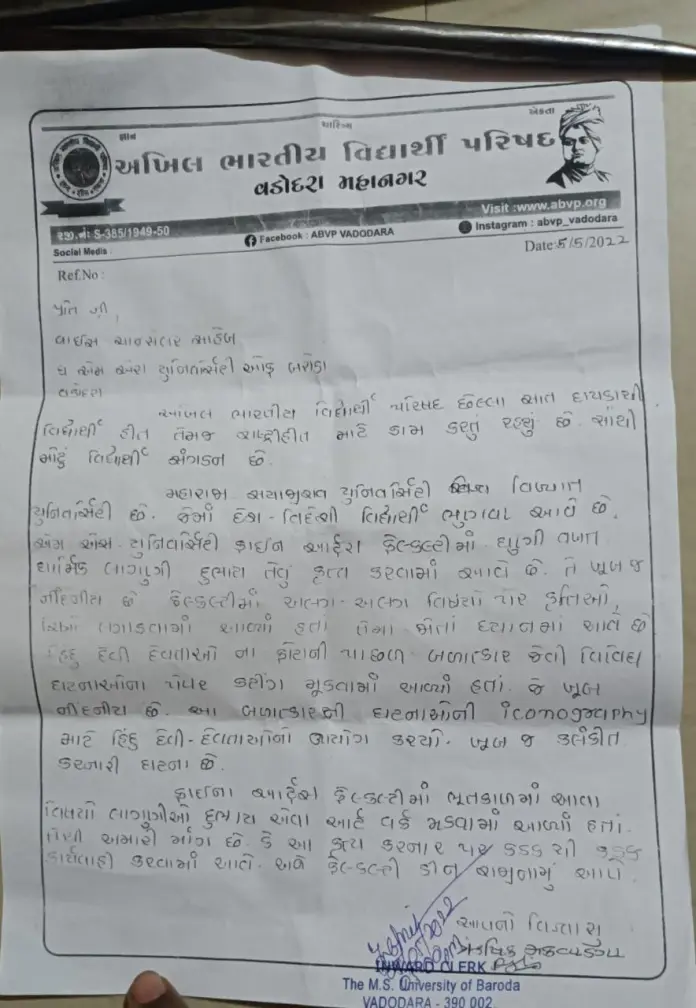 જ્ઞાન
ચારિત્ર્ય
એકતા
અખિલ ભારતીય વિદ્યાર્થી પરિષદ
વડોદરા મહાનગર
રજી.નં: S-385/1949-50
Visit :www.abvp.org
Social Media :
Facebook : ABVP VADODARA
Instagram : abvp_vadodara
Ref.No :
Date: 5/5/2022
પ્રતિ શ્રી,
વાઈસ ચાન્સેલર સાહેબ
ધ એમ એસ યુનિવર્સિટી ઓફ બરોડા
વડોદરા
અખિલ ભારતીય વિદ્યાર્થી પરિષદ છેલ્લા સાત દાયકાથી
વિદ્યાર્થી હીત તેમજ રાષ્ટ્રહીત માટે કામ કરતું રહ્યું છે. સૌથી
મોટું વિદ્યાર્થી સંગઠન છે.
મહારાજા સયાજીરાવ યુનિવર્સિટી વિખ્યાત
યુનિવર્સિટી છે. જેમાં દેશ-વિદેશથી વિદ્યાર્થી ભણવા આવે છે.
એમ એસ યુનિવર્સિટી ફાઈન આર્ટસ ફેકલ્ટીમાં ઘણી વખત
ધાર્મિક લાગણી દુભાય તેવું કૃત્ય કરવામાં આવે છે. તે ખૂબ જ
નીંદનીય છે ફેકલ્ટીમાં અલગ-અલગ વિષયો પર કૃતિઓ
લગાડવામાં આવ્યાં હતાં જોતાં ધ્યાનમાં આવે છે
હિંદુ દેવી દેવતાઓ ના ફોટાની પાછળ બળાત્કાર જેવી વિવિધ
ઘટનાઓના પેપર કટીંગ મૂકવામાં આવ્યાં હતાં. જે ખૂબ
નીંદનીય છે. આ બળાત્કારની ઘટનાઓની iconography
માટે હિંદુ દેવી-દેવતાઓનો ઉપયોગ કર્યો. ખૂબ જ કલંકીત
કરનારી ઘટના છે.
ફાઈન આર્ટસ ફેકલ્ટીમાં ભૂતકાળમાં આવા
વિષયો લાગણીઓ દુભાય એવા આર્ટ વર્ક મૂકવામાં આવ્યાં હતાં.
તેથી અમારી માંગ છે. કે આ કૃત્ય કરનાર પર કડક થી કડક
કાર્યવાહી કરવામાં આવે. અને ફેકલ્ટી ડીન રાજીનામું આપે.
આપનો વિશ્વાસુ
INWARD CLERK
The M.S. University of Baroda
VADODARA - 390 002